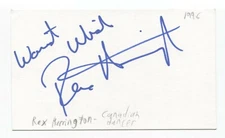 1996
Warmest Wishes
Rex Harrington
Rex Harrington - Canadian
dancer